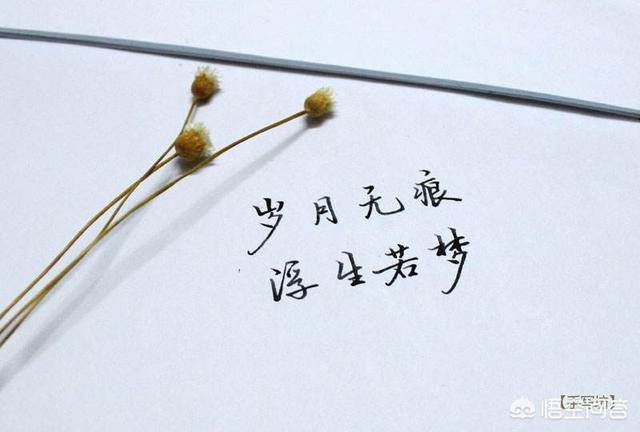 岁月无痕
浮生若梦
【手写坊】
悟空问答